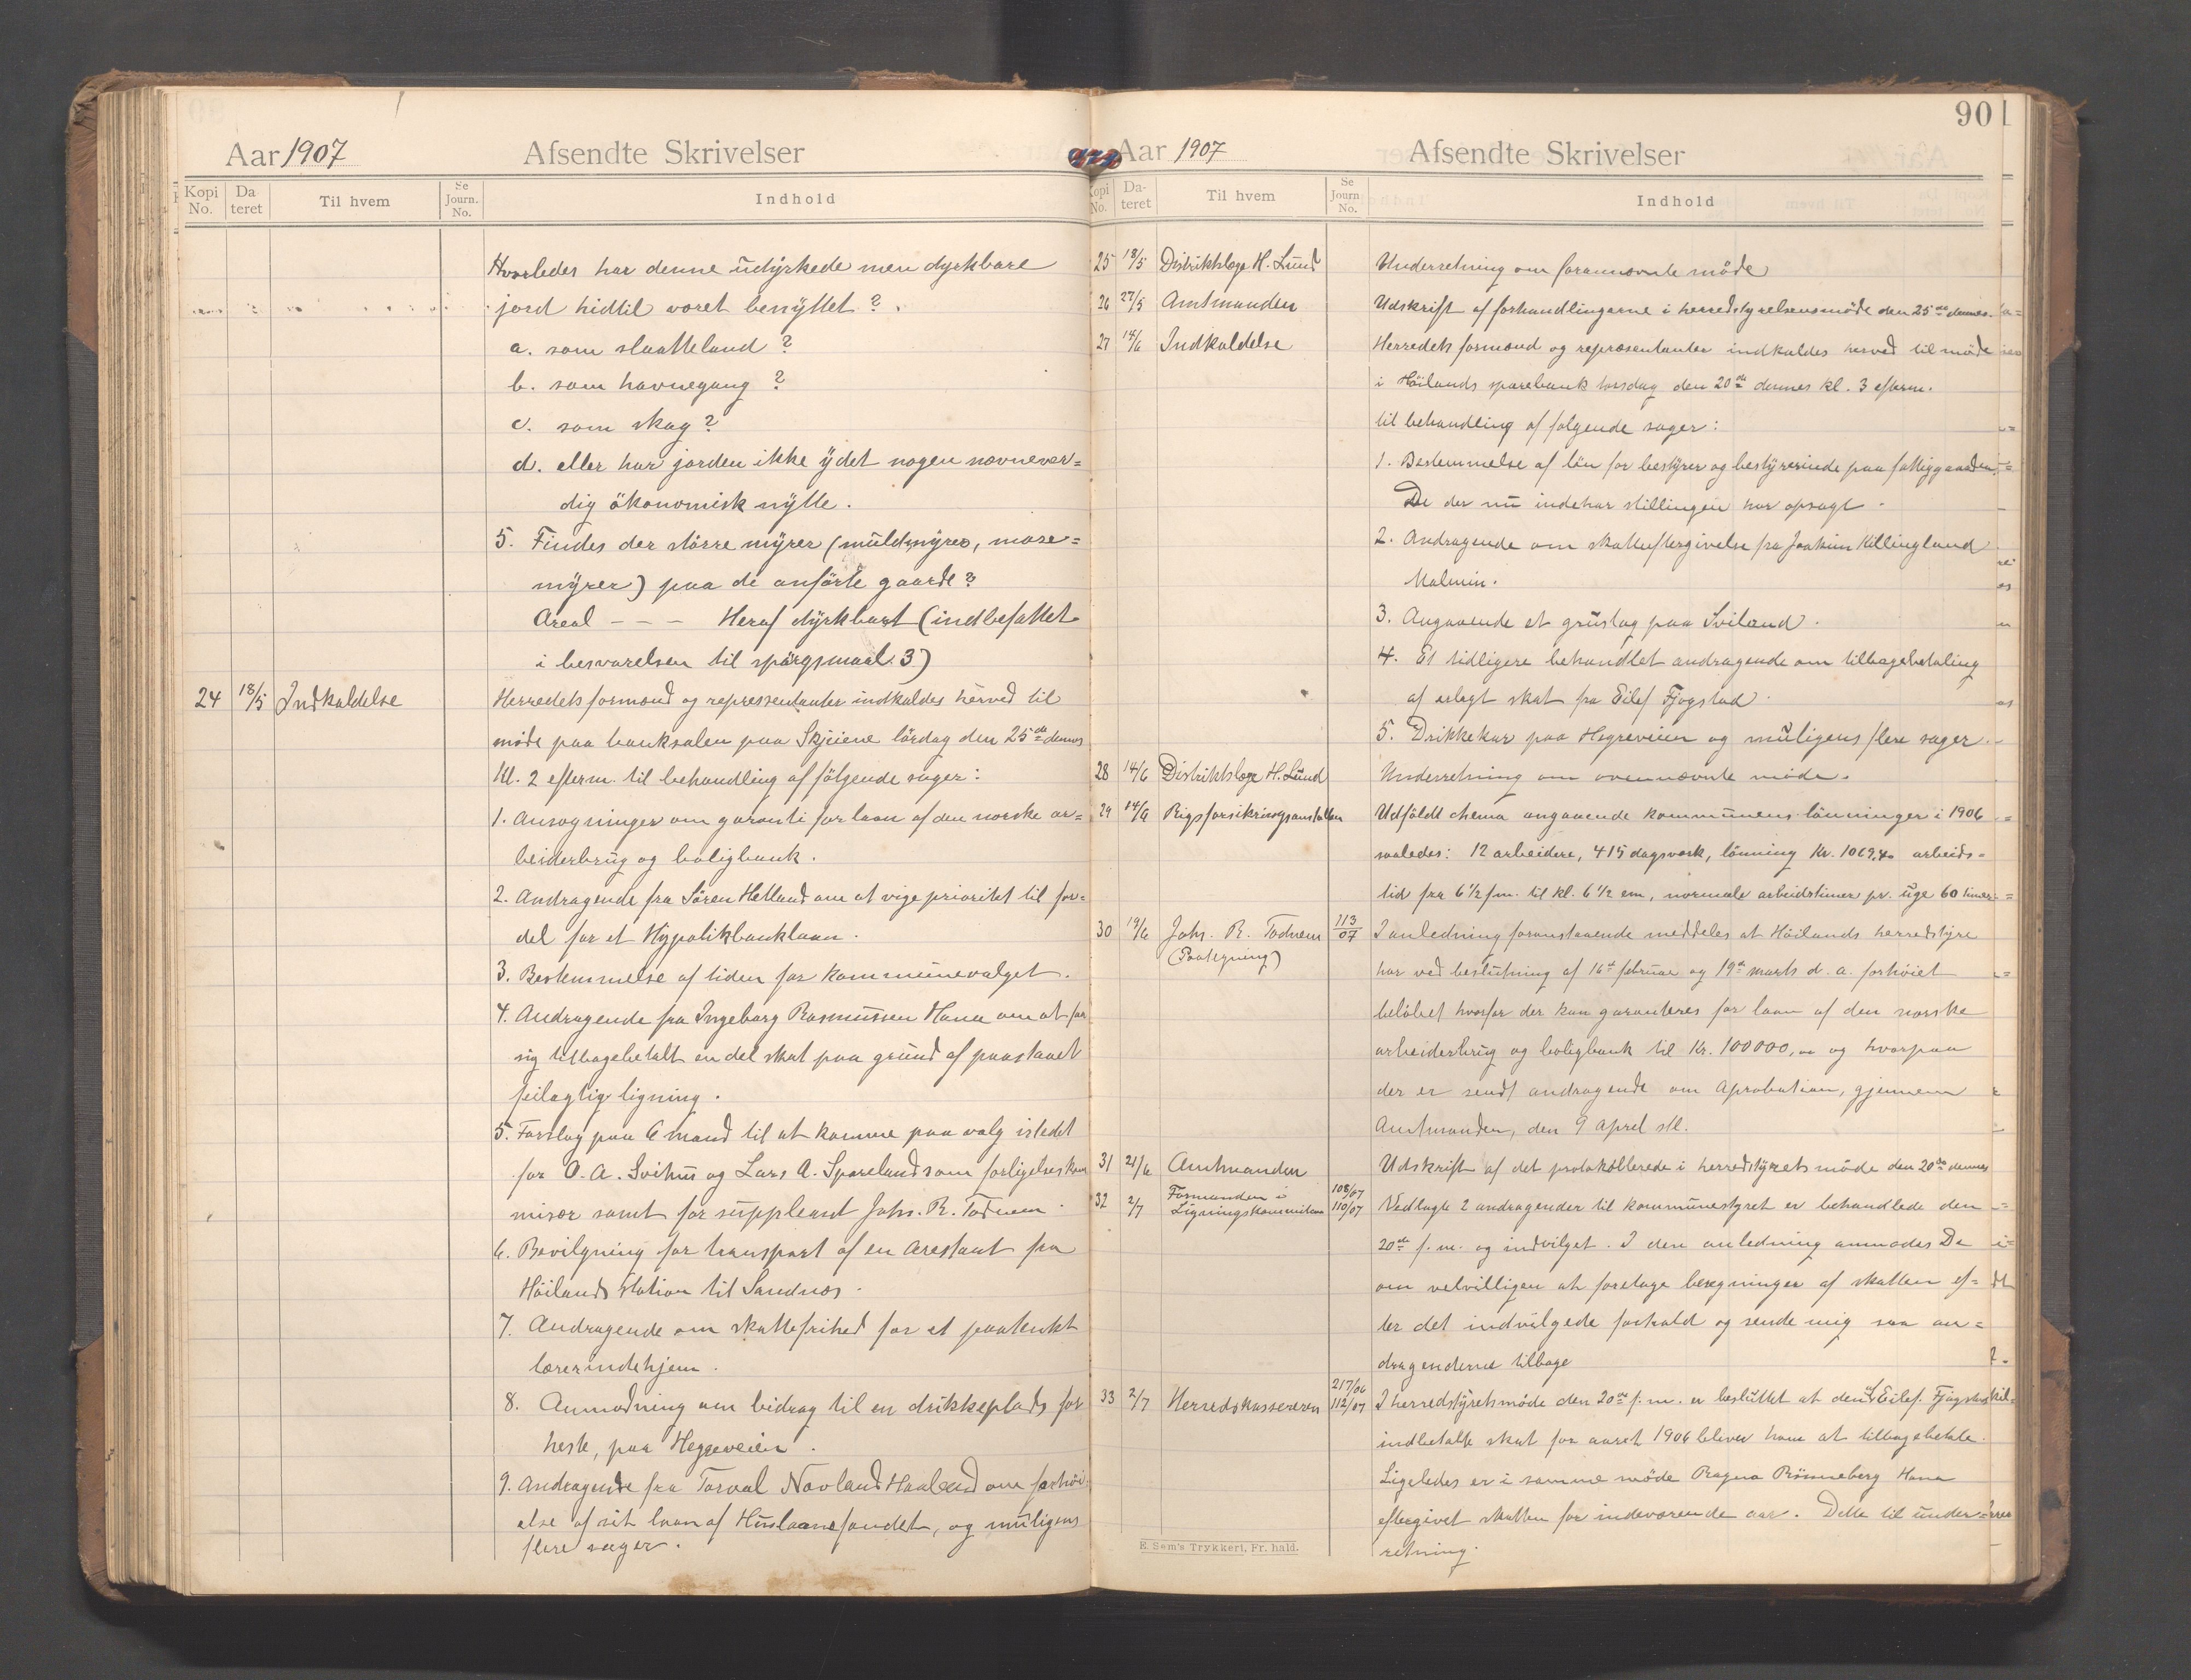 Aar 1907 Afsendte Skrivelser
Kopi No. Da teret Til hvem Se Journ. No. Indhold
Hvorledes har denne udyrkede men dyrkbare
jord hidtil været benyttet?
a. som slaatteland?
b. som havnegang?
c. som skog?
d. eller har jorden ikke ydet nogen nævnever=
dig økonomisk nytte.
5. Findes der større myrer (muldmyrer, mose=
myrer) paa de anførte gaarde?
Areal - - - Heraf dyrkbart (indbefattet
i besvarelsen til spørgsmaal 3)
24 18/5 Indkaldelse Herredets formænd og repressentanter indkaldes herved til
møde paa banksalen paa Skjeiene lørdag den 25de dennes
Kl. 2 efterm. til behandling af følgende sager:
1. Ansøgninger om garanti for laan af den norske ar=
beiderbrug og boligbank.
2. Andragende fra Søren Hetland om at vige prioritet til for=
del for et Hypotikbanklaan.
3. Bestemmelse af tiden for kommunevalget.
4. Andragende fra Ingeborg Rasmussen Hana om at faa
sig tilbagebetalt en del skat paa grund af paastaaet
feilagtig ligning.
5. Forslag paa 6 mænd til at komme paa valg istedet
for O. A. Svihus og Lars A. Sporeland som forligelseskom
misær samt for suppleant Johs. R. Todnem.
6. Bevilgning for transport af en Arestant fra
Høilands Station til Sandnæs.
7. Andragende om skattefrihed for et paatænkt
lærerindehjem.
8. Anmodning om bidrag til en drikkeplads for
heste, paa Hegreveien.
9. Andragende fra Torval Novland Haaland om forhøi
else af sit laan af Huslaanefondet, og muligens
flere sager.
Aar 1907 Afsendte Skrivelser 90
Kopi No. Da- teret Til hvem Se Journ No. Indhold
25 18/5 Distriktslæge H. Lund Underretning om forannævnte møde
26 27/5 Amtmanden Udskrift af forhandlingerne i herredstyrelsensmøde den 25de dennes.
27 14/6 Indkaldelse Herredets formænd og repræsentanter indkaldes herved til møde
i Høilands sparebank torsdag den 20de dennes kl. 3 efterm.
til behandling af følgende sager:
1. Bestemmelse af løn for bestyrer og bestyrerinde paa fattiggaarden.
De der nu indehar stillingen har opsagt.
2. Andragende om skatteeftergivelse fra Joakim Killingland
Malmin.
3. Angaaende et grustag paa Sviland.
4. Et tidligere behandlet andragende om tilbagebetaling
af erlagt skat fra Eilef Fjogstad.
5. Drikkekar paa Hegreveien og muligens flere sager.
28 14/6 Distriktslæge H. Lund Underretning om ovennævnte møde.
29 14/6 Rigsforsikringsanstalten Udfyldt schema angaaende kommunens lønninger i 1906
saaledes: 12 arbeidere, 415 dagsverk, lønning Kr. 1069,40 arbeids=
tid fra 6 1/2 fm. til kl. 6 1/2 em, normale arbeidstimer pr. uge 60 timer
30 19/6 Johs. R. Todnem 113/07 I anledning foranstaaende meddeles at Høilands herredstyre
(Paategning) har ved beslutning af 16de februar og 19de marts d. a. forhøiet
beløbet hvorfor der kan garanteres for laan af den norske
arbeiderbrug og boligbank til Kr. 100000,00 og hvorpaa
der er sendt andragende om Aprobation, gjennem
Amtmanden, den 9 April stl.
31 21/6 Amtmanden Udskrift af det protokollerede i herredstyrets møde den 20de dennes
32 2/7 Formanden i Ligningskommisionen 108/07 110/07 Vedlagte 2 andragender til kommunestyret er behandlede den
20de f. m. og indvilget. I den anledning anmodes De
om velvilligen at foretage beregninger af skatten ef=
ter det indvilgede forhold og sende mig saa an=
dragenderne tilbage
33 2/7 Herredskassereren 217/06 112/07 I herredstyretsmøde den 20de f. m. er besluttet at den af Eilef Fjogstad
indbetalte skat for aaret 1906 bliver ham at tilbagebetale.
Ligeledes er i samme møde Ragna Rønneberg Hana
eftergivet skatten for indeværende aar. Dette til under=
retning.
E. Sem's Trykkeri, Fr. hald.